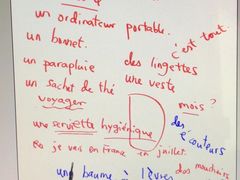 un ordinateur portable.
un bonnet. c'est tout.
un parapluie des lingettes
un sachet de thé une veste
voyager mois ?
une serviette hygiénique des écouteurs
je vais en France en juillet.
un baume à lèvres des mouchoirs